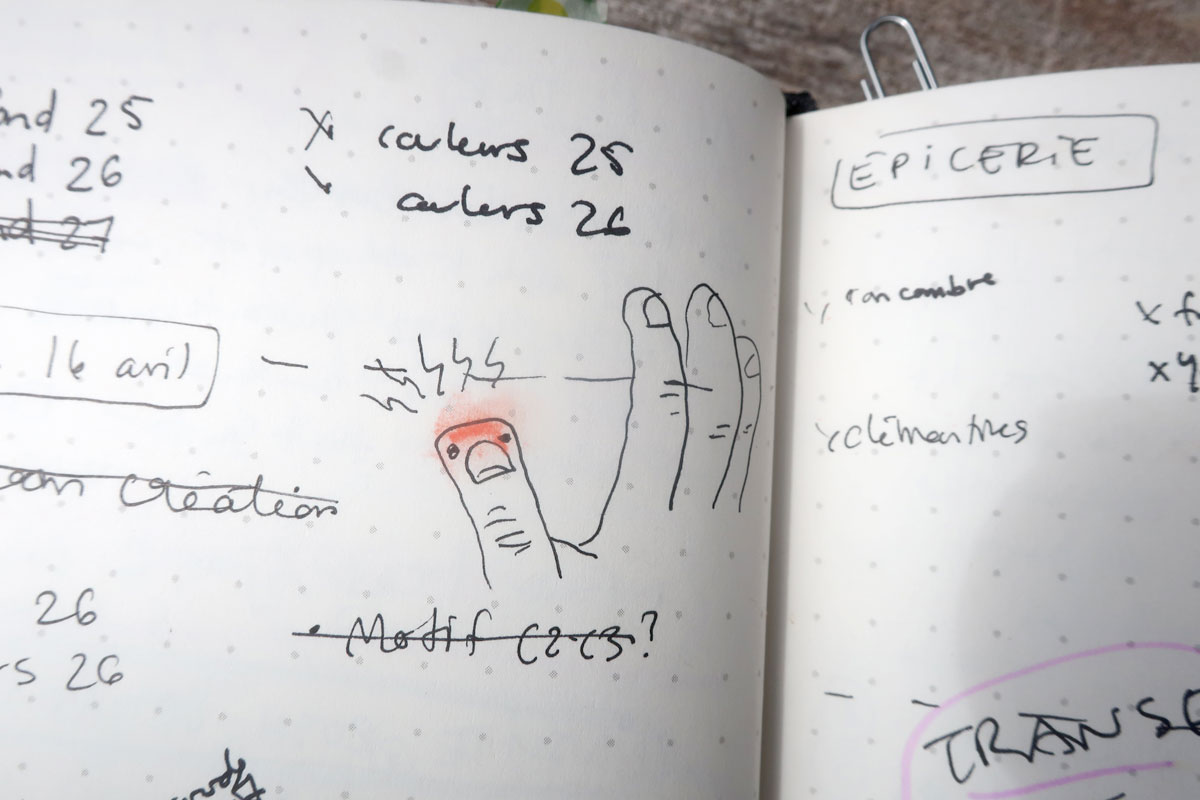 ond 25
nd 26
nd 27
X couleurs 25
couleurs 26
16 avril
création
26
rs 26
• Motif C2-C3?
ÉPICERIE
concombre
x clémentines
x f
x 4
TRANSF